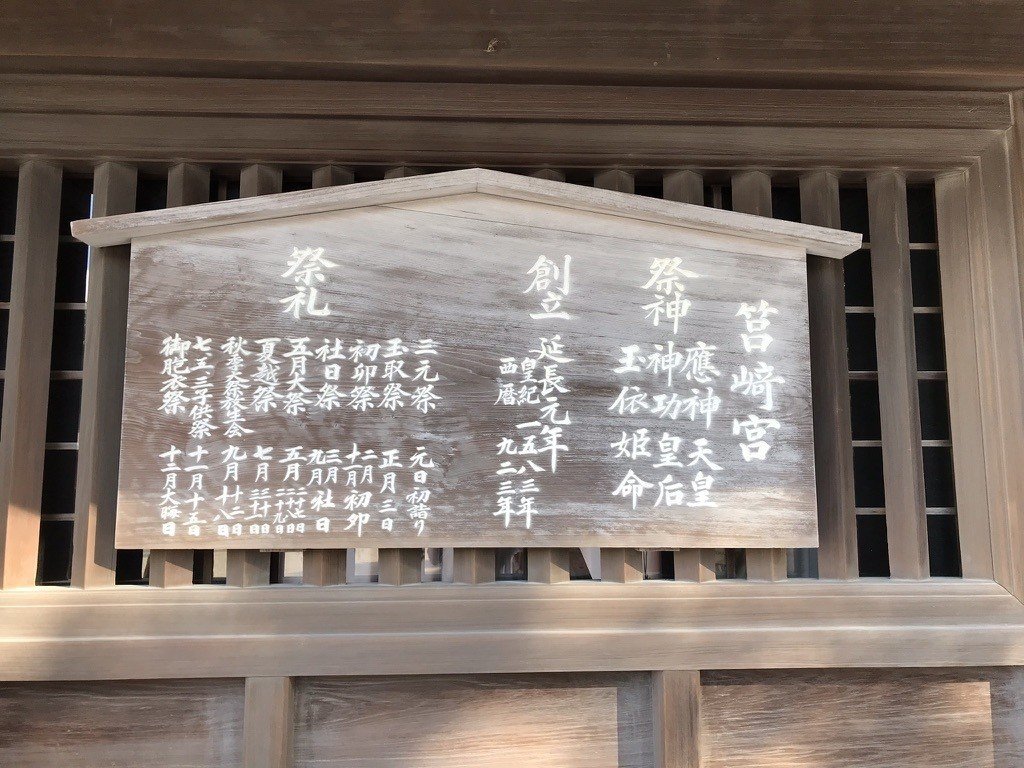 筥崎宮
祭神
應神天皇
神功皇后
玉依姫命
創立
延長元年
皇紀 一五八三年
西暦 九二三年
祭礼
三元祭 元日初詣り
玉取祭 正月三日
初卯祭 二月 十一月 初卯
社日祭 三月 九月 社日
五月大祭 五月
夏越祭 七月
秋季大祭放生会 九月 十二日 十八日
七五三子供祭 十一月十五日
御胞衣祭 十二月大晦日